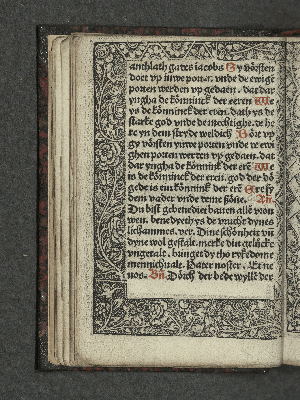 anthlath gades iacobs Sy vörsten
doet vp iuwe porten vnde de ewige
porten werden vp gedaen. dat dar
yngha de könninck der eeren We
ys de könninck der eren. dath ys de
starke god vnde de mechtighe. de he
re yn dem stryde weldich Böre vp
gy vörsten yuwe porten vnde de ewi
ghen porten werden vp gedaen. dat
dar yngha de könninck der erē We
is de könninck der eren. god der dö
gede is ein könnick der erē Ere sy
dem vader vnde deme söne. An.
Du bist gebenediet bauen alle vrou
wen. benedyeth ys de vrucht dynes
lichammes. ver. Dine schönheit vn̄
dyne wol gestalt. merke din gelücke
vngetale. bringet dy tho rykedome
mennichuale. Pater noster. Et ne
nos. Bn̄. Dörch der bede wylle der